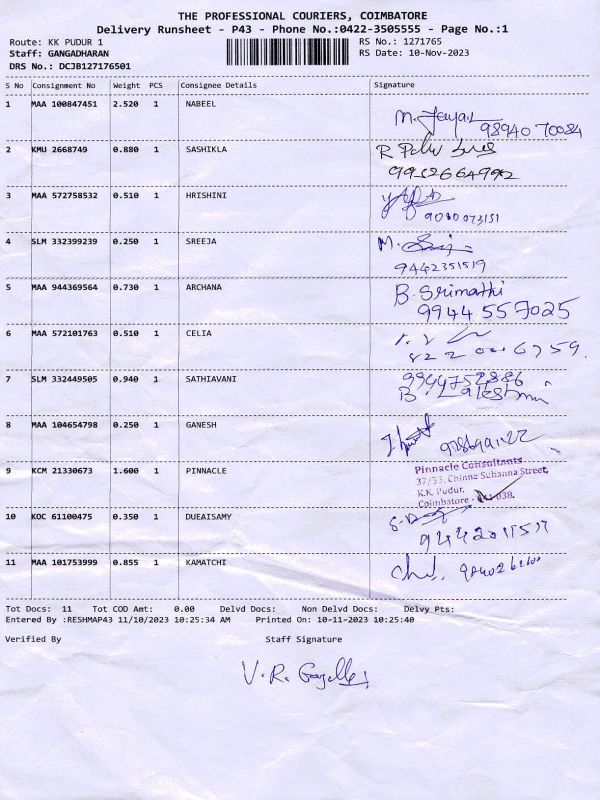 THE PROFESSIONAL COURIERS, COIMBATORE
Delivery Runsheet - P43 - Phone No.:0422-3505555 - Page No.:1
Route: KK PUDUR 1 RS No.: 1271765
Staff: GANGADHARAN RS Date: 10-Nov-2023
DRS No.: DCJB127176501
S No Consignment No Weight PCS Consignee Details Signature
1 MAA 100847451 2.520 1 NABEEL
98940 70084
2 KMU 2668749 0.880 1 SASHIKLA R
9952664992
3 MAA 572758532 0.510 1 HRISHINI
9080073151
4 SLM 332399239 0.250 1 SREEJA M.
9442351519
5 MAA 944369564 0.730 1 ARCHANA B. Srimathi
9944557025
6 MAA 572101763 0.510 1 CELIA
7 SLM 332449505 0.940 1 SATHIAVANI
B.
8 MAA 104654798 0.250 1 GANESH
9 KCM 21330673 1.600 1 PINNACLE Pinnacle Consultants
37/53, Chinna Subanna Street,
K.K. Pudur,
Coimbatore - 038.
10 KOC 61100475 0.350 1 DUEAISAMY
11 MAA 101753999 0.855 1 KAMATCHI
Tot Docs: 11 Tot COD Amt: 0.00 Delvd Docs: Non Delvd Docs: Delvy Pts:
Entered By :RESHMAP43 11/10/2023 10:25:34 AM Printed On: 10-11-2023 10:25:40
Verified By Staff Signature
V.R.